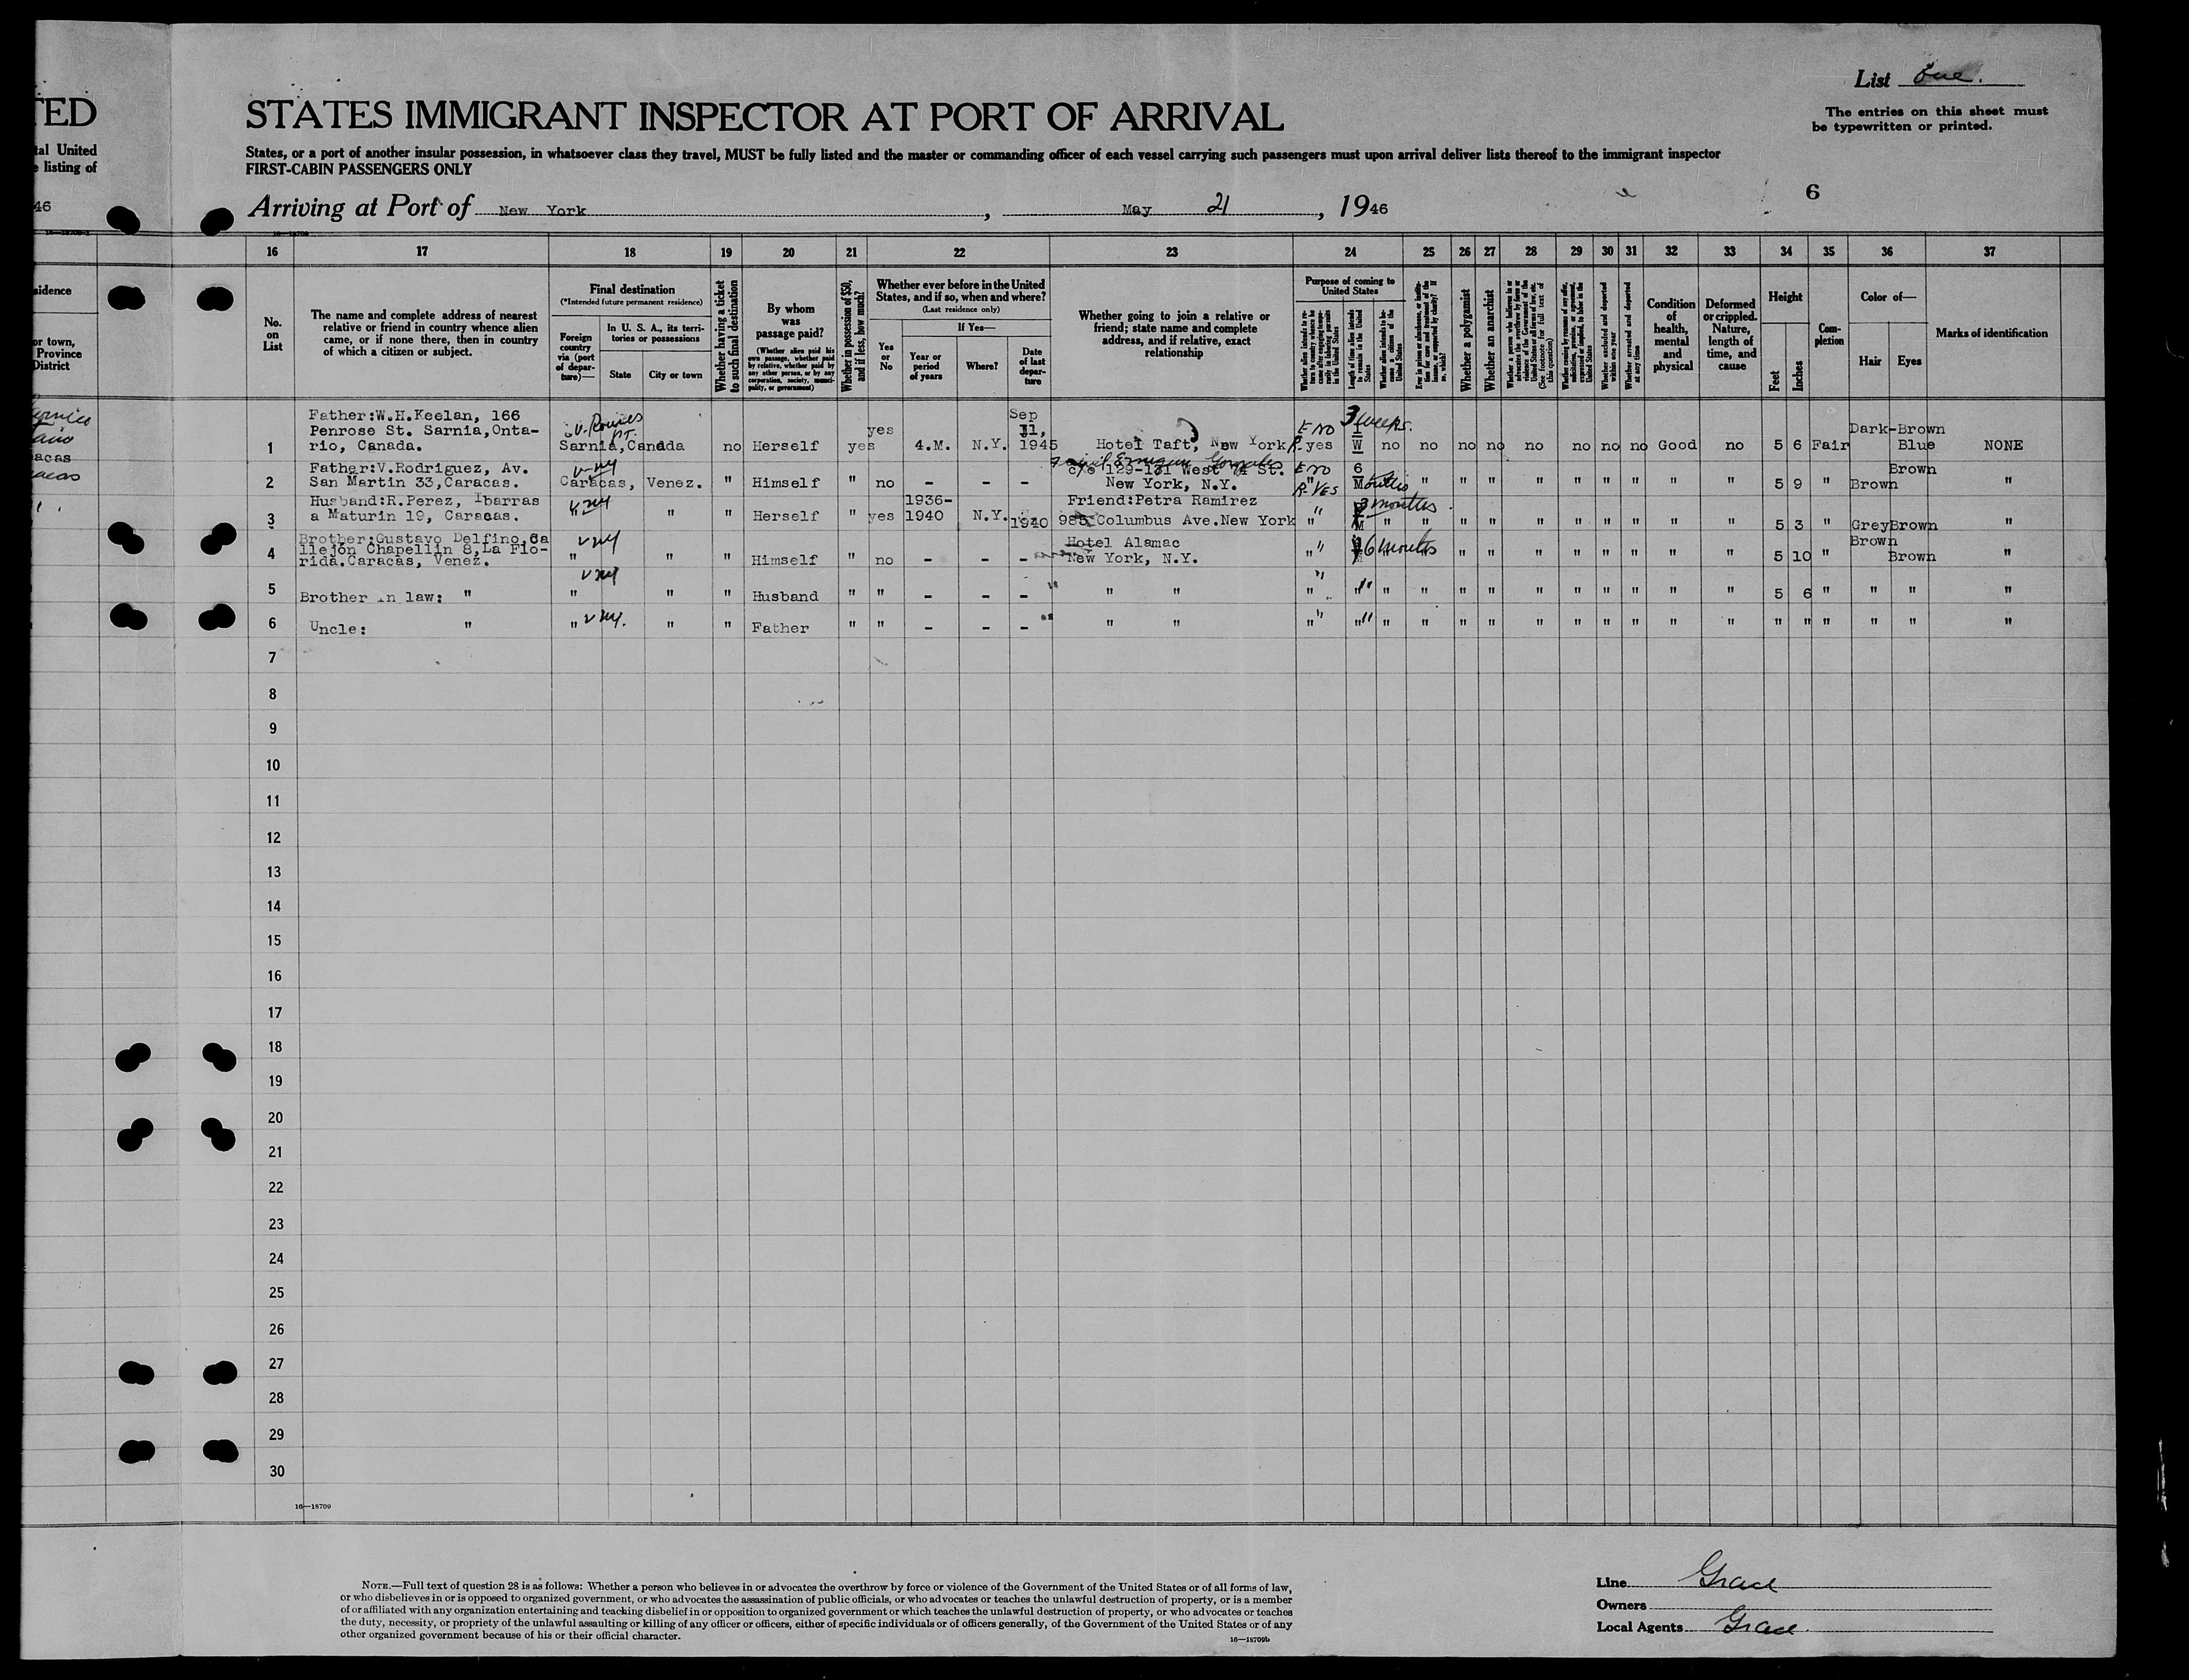 List One.
The entries on this sheet must
be typewritten or printed.
TED
STATES IMMIGRANT INSPECTOR AT PORT OF ARRIVAL
tal United
listing of
States, or a port of another insular possession, in whatsoever class they travel, MUST be fully listed and the master or commanding officer of each vessel carrying such passengers must upon arrival deliver lists thereof to the immigrant inspector
FIRST-CABIN PASSENGERS ONLY
46
Arriving at Port of New York, May 21, 1946
6
16 17 18 19 20 21 22 23 24 25 26 27 28 29 30 31 32 33 34 35 36 37
sidence
or town,
Province
District
No.
on
List
The name and complete address of nearest
relative or friend in country whence alien
came, or if none there, then in country
of which a citizen or subject.
Final destination
(*Intended future permanent residence)
Foreign
country
via (port
of depar-
ture)—
In U. S. A., its terri-
tories or possessions
State
City or town
Whether having a ticket
to such final destination
By whom
was
passage paid?
(Whether alien paid his
own passage, whether paid
by relative, whether paid by
any other person, or by any
corporation, society, munici-
pality, or government)
Whether in possession of $50,
and if less, how much?
Whether ever before in the United
States, and if so, when and where?
(Last residence only)
Yes
or
No
If Yes—
Year or
period
of years
Where?
Date
of last
depar-
ture
Whether going to join a relative or
friend; state name and complete
address, and if relative, exact
relationship
Purpose of coming to
United States
Length of time alien intends
to remain in the United
States
Whether alien intends to be-
come a citizen of the
United States
Whether a polygamist
Whether an anarchist
Whether excluded and deported
within one year
Whether arrested and deported
at any time
Condition
of
health,
mental
and
physical
Deformed
or crippled.
Nature,
length of
time, and
cause
Height
Feet
Inches
Com-
plexion
Color of—
Hair
Eyes
Marks of identification
acas
1
Father:W.H.Keelan, 166
Penrose St. Sarnia,Onta-
rio, Canada.
Sarnia,Canada no Herself yes yes 4.M. N.Y. Sep 11, 1945 Hotel Taft, New York E no R.yes 3 weeks. no no no no no no no no Good no 5 6 Fair Dark-Brown Blue NONE
2
Father:V.Rodriguez, Av.
San Martin 33,Caracas.
v-ny
Caracas, Venez. " Himself " no - - - c/o 129-131 West St.
New York, N.Y. E no R-Yes 6 Months " " " " " " " " " " 5 9 " Brown Brown "
3
Husband:R.Perez, Ibarras
a Maturin 19, Caracas.
v.ny
" " Herself " yes 1936-
1940 N.Y. 1940 Friend:Petra Ramirez
985 Columbus Ave.New York " 3 months " " " " " " " " " " 5 3 " Grey Brown "
4
Brother:Gustavo Delfino,Ca
llejón Chapellin 8,La Flo-
rida.Caracas, Venez.
v ny
" " " Himself " no - - - Hotel Alamac
New York, N.Y. " 6 months " " " " " " " " " " 5 10 " Brown Brown "
5
Brother in law: "
v ny
" " " Husband " " - - - " " " " " " " " " " " " " " 5 6 " " " "
6
Uncle: "
" v ny. " " Father " " - - - " " " " " " " " " " " " " " " " " " " "
7
8
9
10
11
12
13
14
15
16
17
18
19
20
21
22
23
24
25
26
27
28
29
30
16—18709
NOTE.—Full text of question 28 is as follows: Whether a person who believes in or advocates the overthrow by force or violence of the Government of the United States or of all forms of law,
or who disbelieves in or is opposed to organized government, or who advocates the assassination of public officials, or who advocates or teaches the unlawful destruction of property, or is a member
of or affiliated with any organization entertaining and teaching disbelief in or opposition to organized government or which teaches the unlawful destruction of property, or who advocates or teaches
the duty, necessity, or propriety of the unlawful assaulting or killing of any officer or officers, either of specific individuals or of officers generally, of the Government of the United States or of any
other organized government because of his or their official character.
16—18709b
Line Grace
Owners
Local Agents Grace.